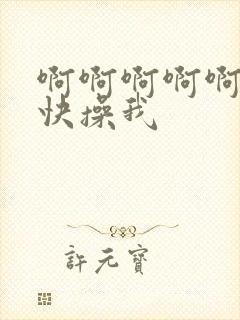 啊啊啊啊啊
快操我
許元寶